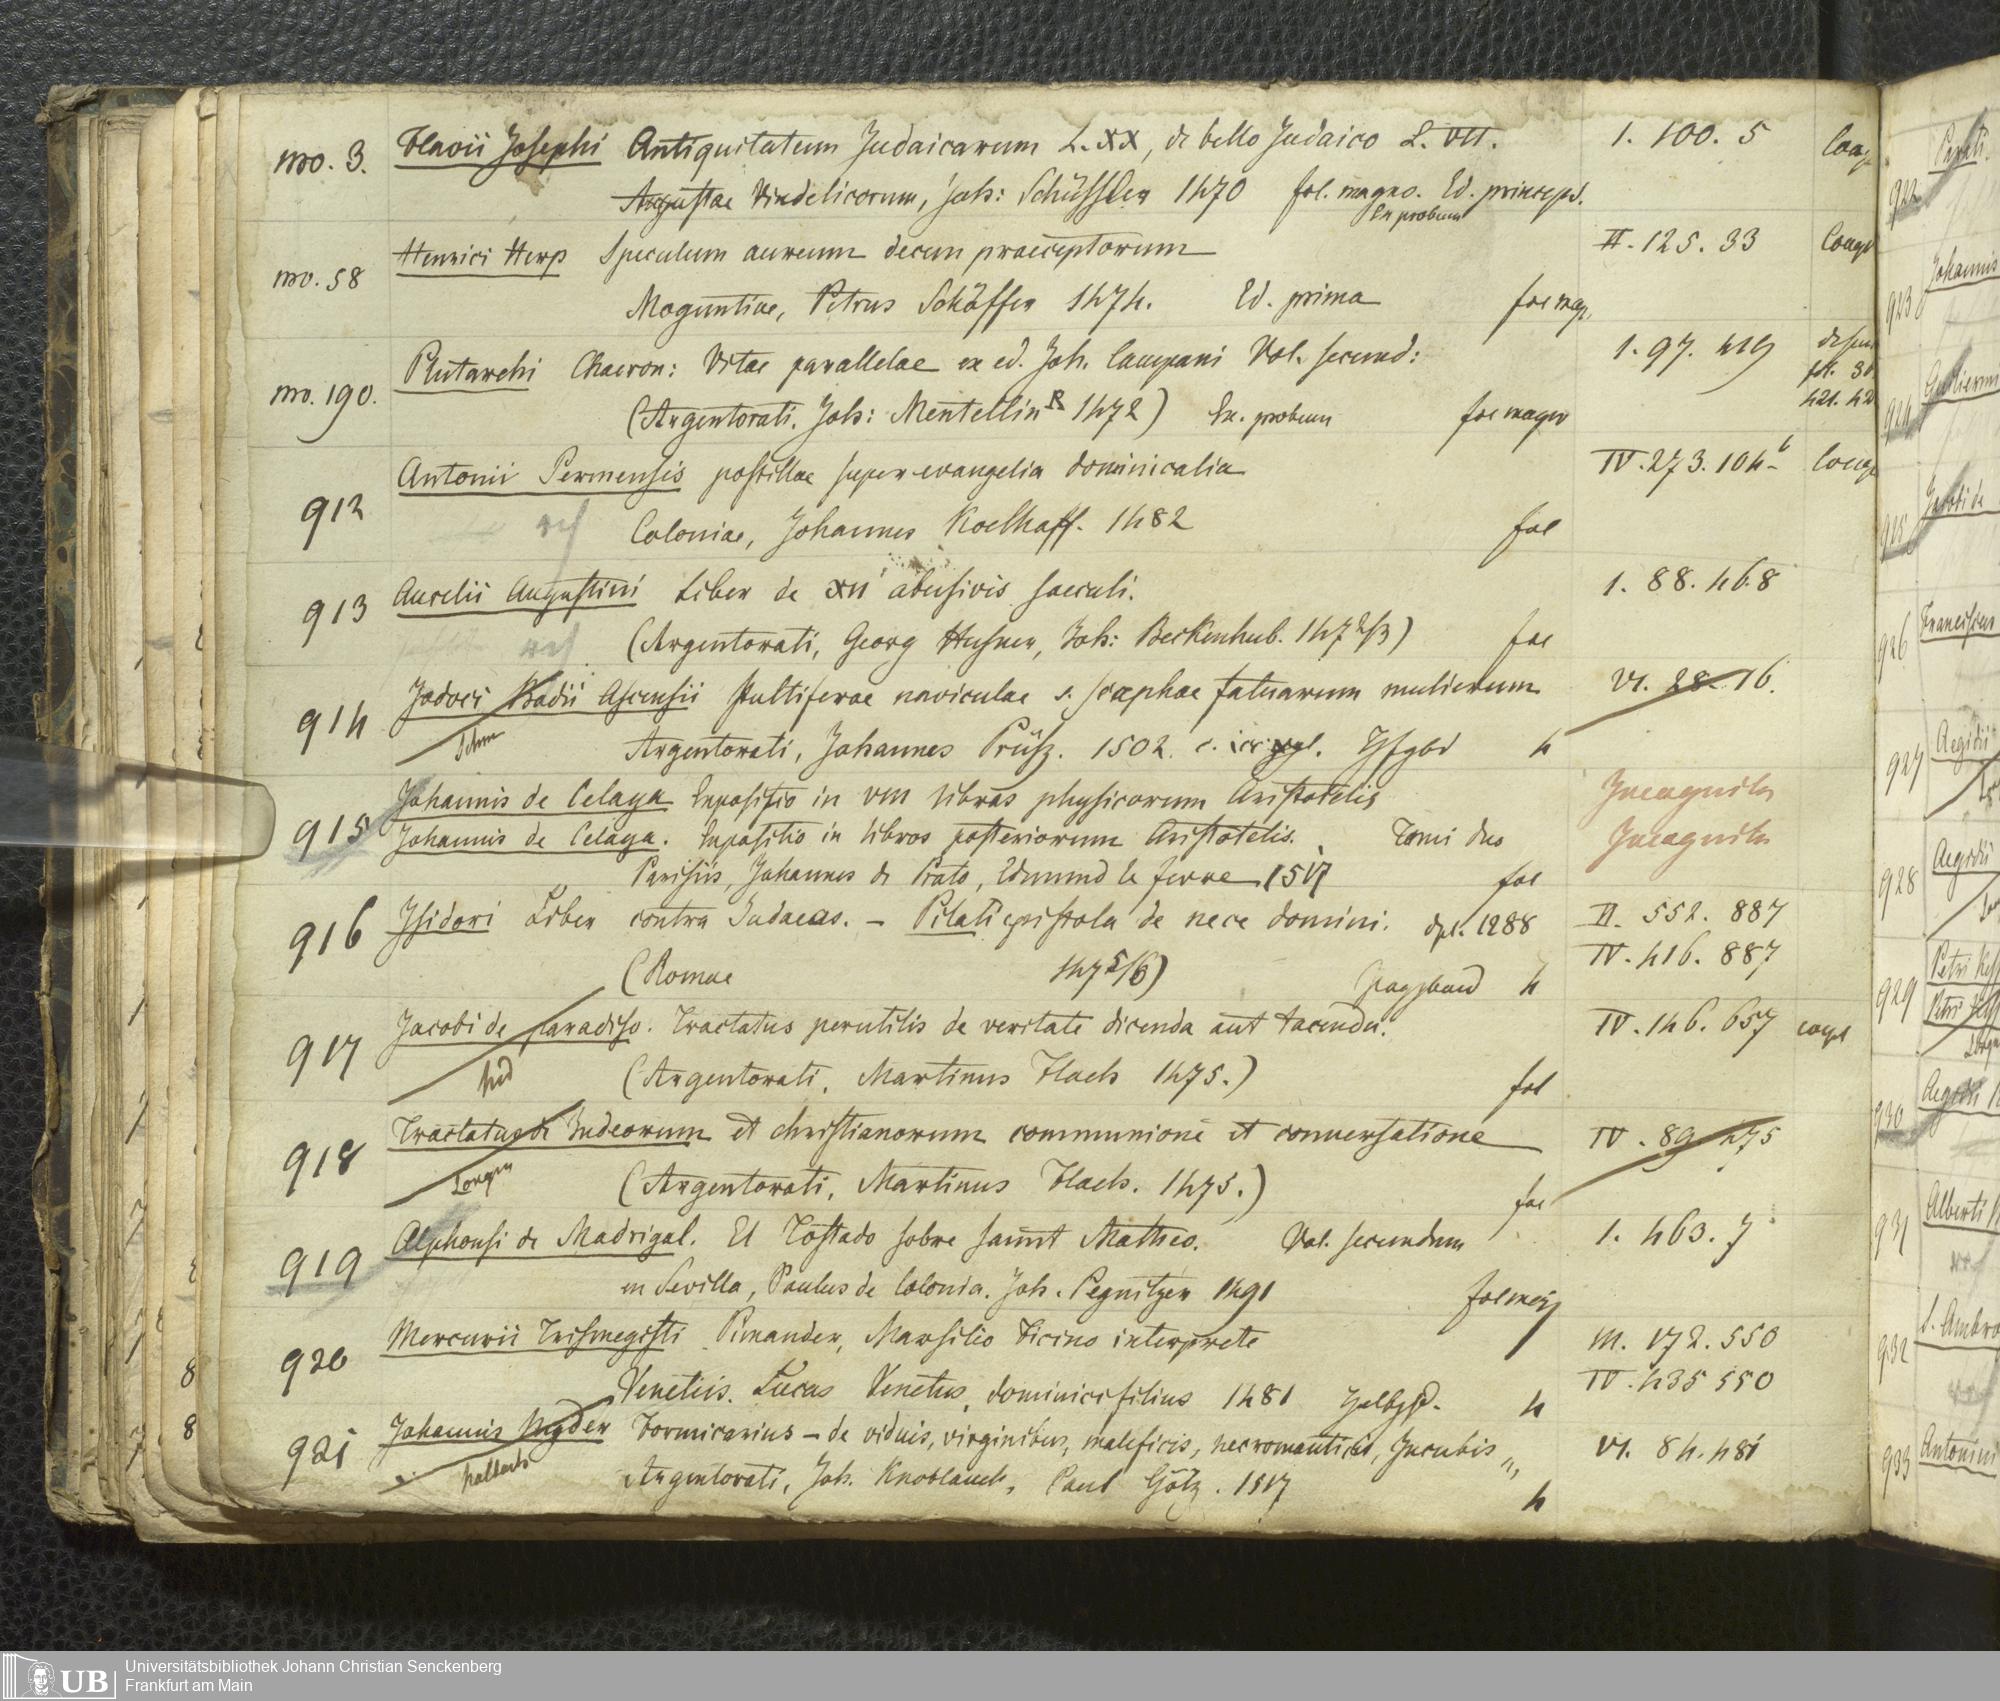 mo. 3. Flavii Josephi Antiquitatum Judaicarum L. XX, de bello Judaico L. VII. 1. 100. 5
Augustae Vindelicorum, Joh: Schüssler 1470 fol. magno. Ed. princeps.
Ex probum
mo. 58 Henrici Herp Speculum aureum decem praeceptorum II. 125. 33
Moguntiae, Petrus Schöffer 1474. Ed. prima fol mag.
mo. 190. Plutarchi Chaeron: Vitae parallelae ex ed. Joh. Campani Vol. secund: 1. 97. 419
(Argentorati. Joh: Mentellin R 1472) Ex. probum fol magn
912 Antonii Parmensis postillae super evangelia dominicalia IV. 273. 104 b
Coloniae, Johannes Koelhoff. 1482 fol
913 Aurelii Augustini Liber de XII abusivis saeculi. 1. 88. 468
(Argentorati, Georg Husner, Joh: Beckenhub. 1472/3) fol
914 Jodoci Badii Ascensii stultiferae naviculae s. scaphae fatuarum mulierum VI. 28. 16.
Argentorati, Johannes Prüsz. 1502. 4
915 Johannis de Celaya Expositio in VIII libros physicorum Aristotelis
Johannis de Celaya. Expositio in libros posteriorum Aristotelis. Tomi duo
Parisiis, Johannes de Prato, Edmund le ferre 1517 fol
916 Isidori Liber contra Judaeos. – Pilati epistola de nece domini. dpl. 1288 II. 552. 887
IV. 416. 887
(Romae 1475/6) 4
917 Jacobi de paradiso. Tractatus perutilis de veritate dicenda aut tacenda. IV. 146. 657 compl
(Argentorati, Martinus Flach 1475.) fol
918 Tractatus de Judeorum et christianorum communione et conversatione IV. 89. 475
(Argentorati, Martinus Flach. 1475.) fol
919 Alphonsi de Madrigal. El Tostado sobre sannt Matheo. Vol. secundum 1. 463. 7
en Sevilla, Paulus de Colonia. Joh. Pegnitzer 1491 fol
920 Mercurii Trismegisti Pimander, Marsilio Ficino interprete III. 172. 550
IV. 435 550
Venetiis. Lucas Venetus, dominici filius 1481 4
921 Johannis Nyder Formicarius – de viduis, virginibus, maleficis, necromanticis, Incubis „ VI. 84. 481
Argentorati, Joh. Knoblauch, Paul Götz. 1517 4
922
923 Johannis
924
925 Jacobi de
926 Franciscus
927 Aegidii
928 Aegidii
929 Petri
Petri
930 Aegidii
931 Alberti
932 S. Ambro
933 Antonini
UB
Universitätsbibliothek Johann Christian Senckenberg
Frankfurt am Main